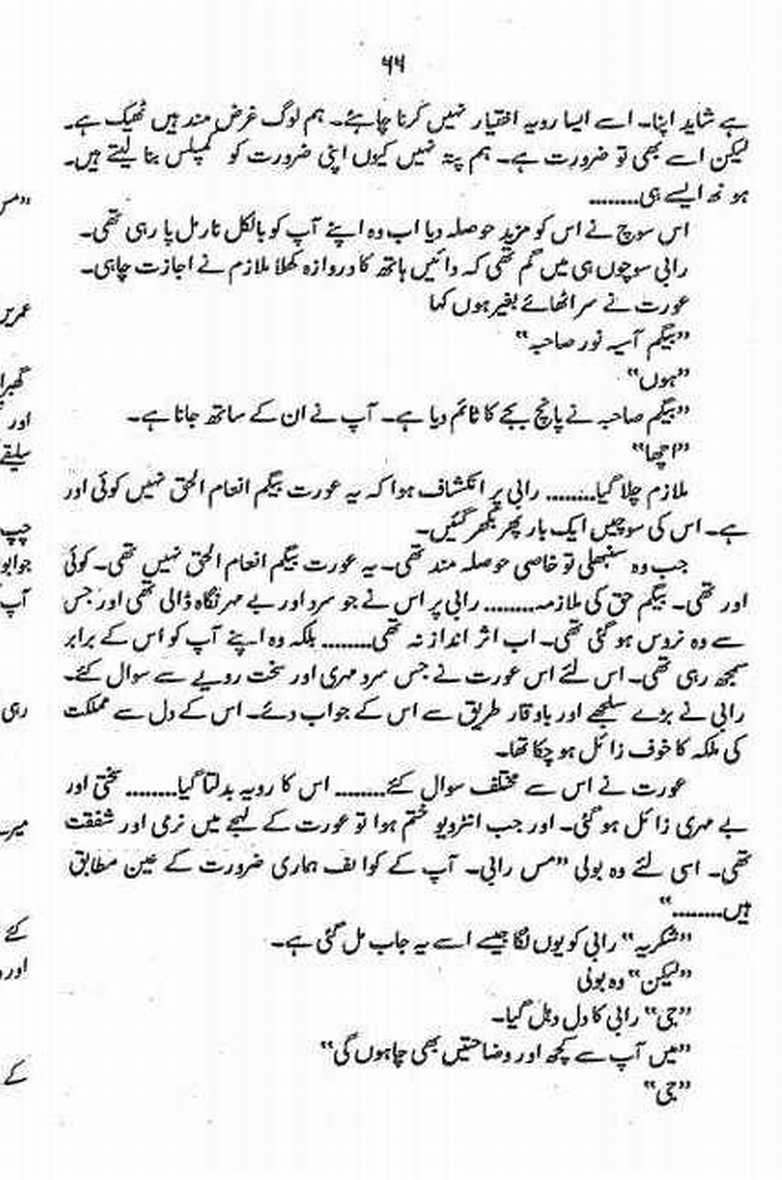 ۶۶
ہے شاید اپنا۔ اسے ایسا رویہ اختیار نہیں کرنا چاہئے۔ ہم لوگ غرض مند ہیں ٹھیک ہے۔
لیکن اسے بھی تو ضرورت ہے۔ ہم پتہ نہیں کیوں اپنی ضرورت کو کمپلس بنا لیتے ہیں۔
ہو نہ ایسے ہی........
اس سوچ نے اس کو مزید حوصلہ دیا اب وہ اپنے آپ کو بالکل نارمل پا رہی تھی۔
رابی سوچوں ہی میں گم تھی کہ دائیں ہاتھ کا دروازہ کھلا ملازم نے اجازت چاہی۔
عورت نے سر اٹھائے بغیر ہوں کہا
”بیگم آسیہ نور صاحبہ“
”ہوں“
”بیگم صاحبہ نے پانچ بجے کا ٹائم دیا ہے۔ آپ نے ان کے ساتھ جانا ہے۔
”اچھا“
ملازم چلا گیا........ رابی پر انکشاف ہوا کہ یہ عورت بیگم انعام الحق نہیں کوئی اور
ہے۔ اس کی سوچیں ایک بار پھر بکھر گئیں۔
جب وہ سنبھلی تو خاصی حوصلہ مند تھی۔ یہ عورت بیگم انعام الحق نہیں تھی۔ کوئی
اور تھی۔ بیگم حق کی ملازمہ........ رابی پر اس نے جو سرد اور بے مہر نگاہ ڈالی تھی اور جس
سے وہ نروس ہو گئی تھی۔ اب اثر انداز نہ تھی........ بلکہ وہ اپنے آپ کو اس کے برابر
سمجھ رہی تھی۔ اس لئے اس عورت نے جس سرد مہری اور سخت رویے سے سوال کئے۔
رابی نے بڑے سلجھے اور باوقار طریق سے اس کے جواب دئے۔ اس کے دل سے مملکت
کی ملکہ کا خوف زائل ہو چکا تھا۔
عورت نے اس سے مختلف سوال کئے........ اس کا رویہ بدلتا گیا........ سختی اور
بے مہری زائل ہو گئی۔ اور جب انٹرویو ختم ہوا تو عورت کے لہجے میں نرمی اور شفقت
تھی۔ اسی لئے وہ بولی ”مس رابی۔ آپ کے کوائف ہماری ضرورت کے عین مطابق
ہیں........“
”شکریہ“ رابی کو یوں لگا جیسے اسے یہ جاب مل گئی ہے۔
”لیکن“ وہ بولی
”جی“ رابی کا دل دہل گیا۔
”میں آپ سے کچھ اور وضاحتیں بھی چاہوں گی“
”جی“